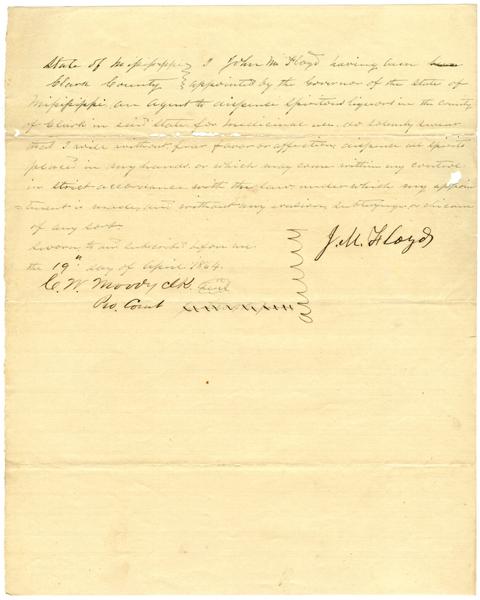 State of Mississippi } I John M Floyd having been
Clark County } appointed by the Governor of the State of
Mississippi an Agent to dispense Spiritous liquors in the county
of Clark in said State for Medicinal use, do solemnly swear
that I will without fear favor or affection, dispense all Spirits
placed in my hands or which may come within my control
in strict accordance with the law under which my appoin
-tment is made, and without any evasion, subterfuge, or chicane
of any sort.
J. M. Floyd
Sworn to and subscribed before me
the 19th day of April 1864.
C. W. Moody Clk.
Pro. Court